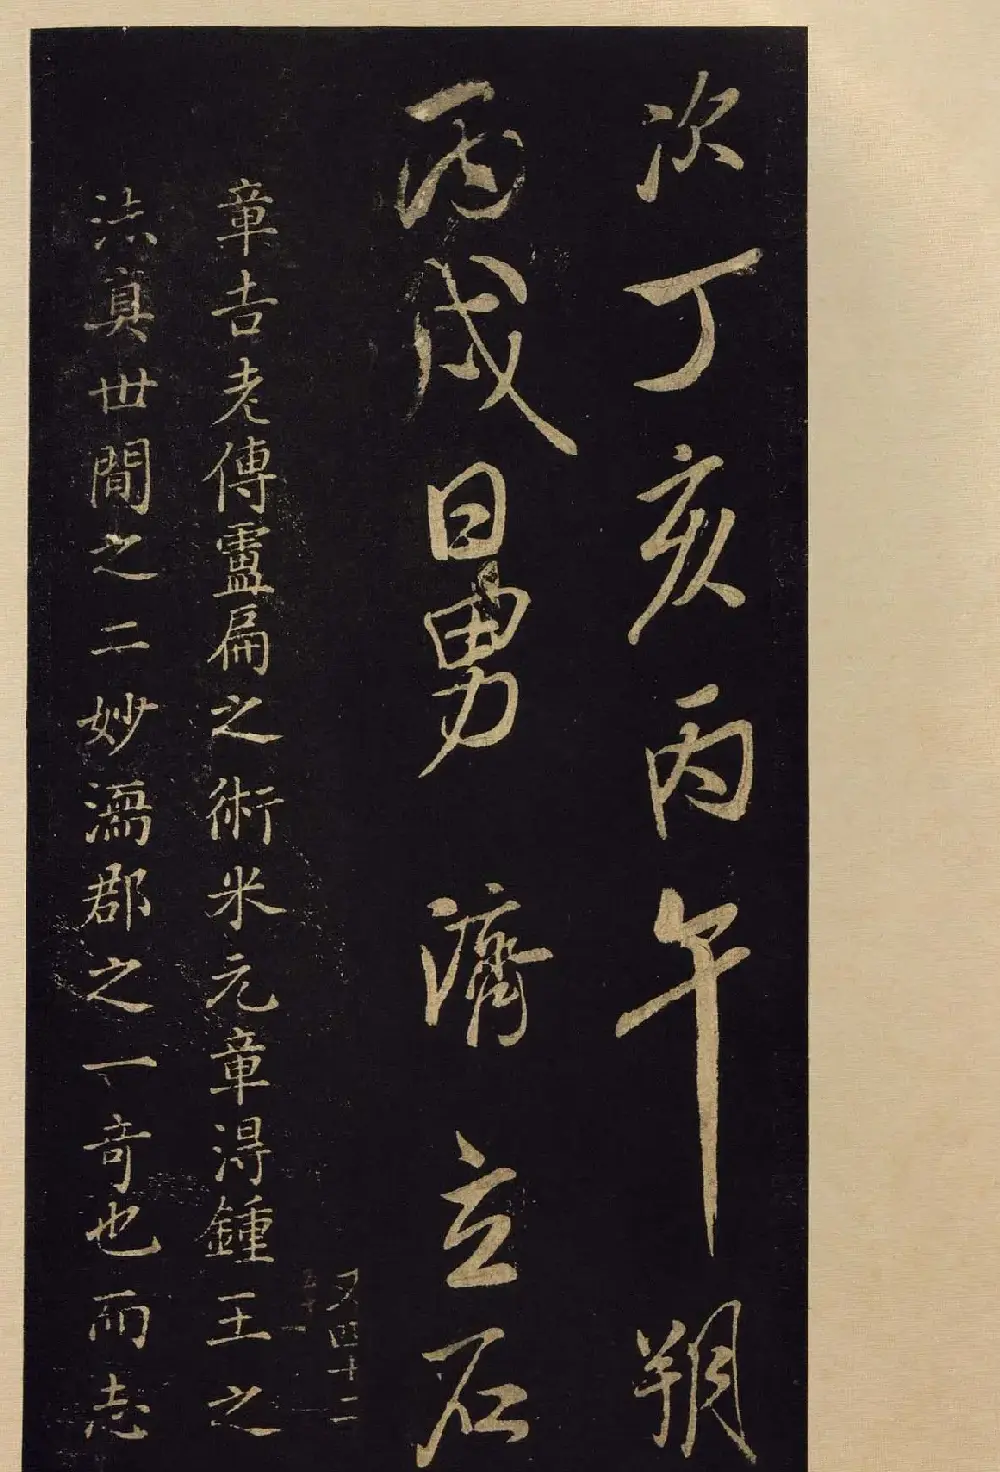 次丁亥丙午朔
丙戌日男濟立石
又四十二
章吉老傳盧扁之術米元章得鍾王之
法真世間之二妙濡郡之一奇也而志